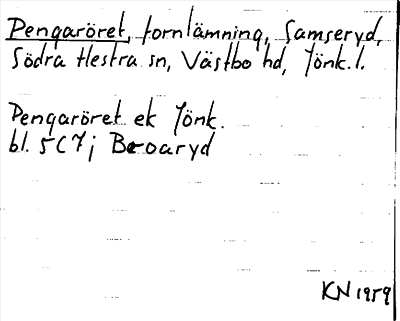 Pengaröret, fornlämning, Samseryd,
Södra Hestra sn, Västbo hd, Jönk. l.
Pengaröret ek Jönk.
bl. 5C7j Broaryd
KN 1959